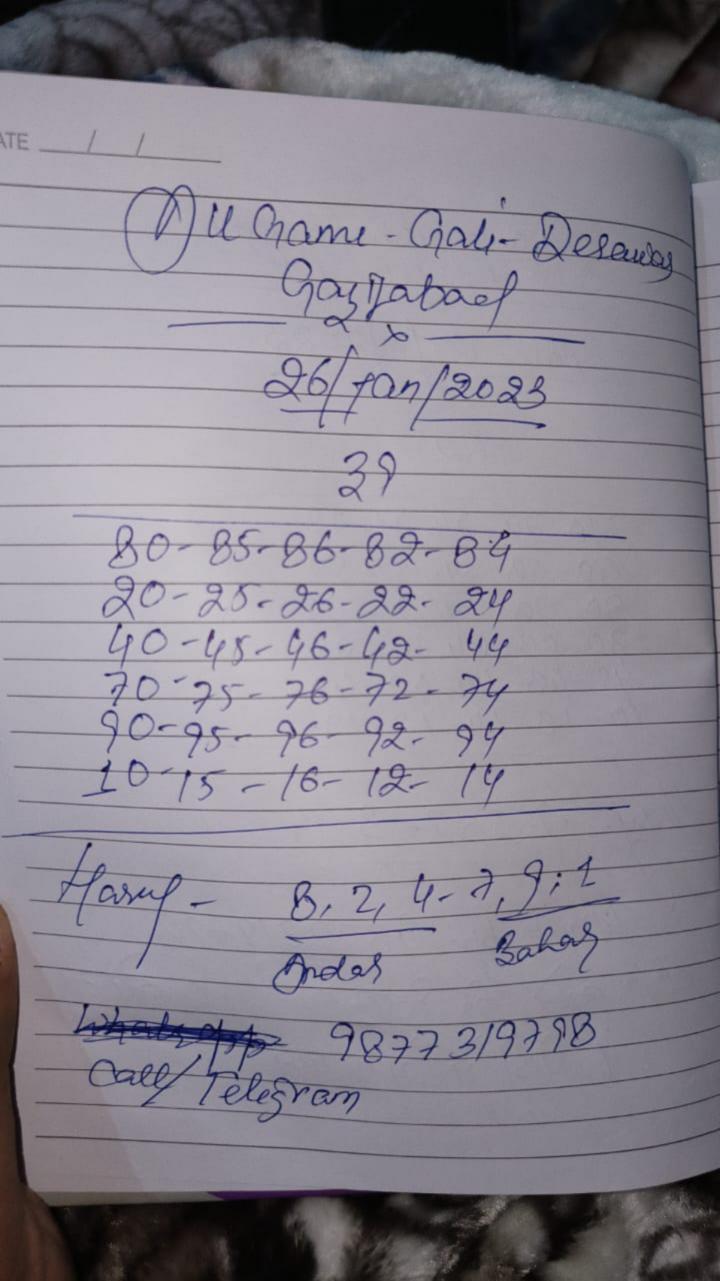 ATE / /
All Game - Gali - Desawar
Gaziabad
x
26/Jan/2023
39
80-85-86-82-84
20-25-26-22-24
40-45-46-42-44
70-75-76-72-74
90-95-96-92-94
10-15-16-12-14
Haruf - 8, 2, 4 - 7, 9, 1
Andar Bahar
Whatsapp 9877319798
Call/Telegram